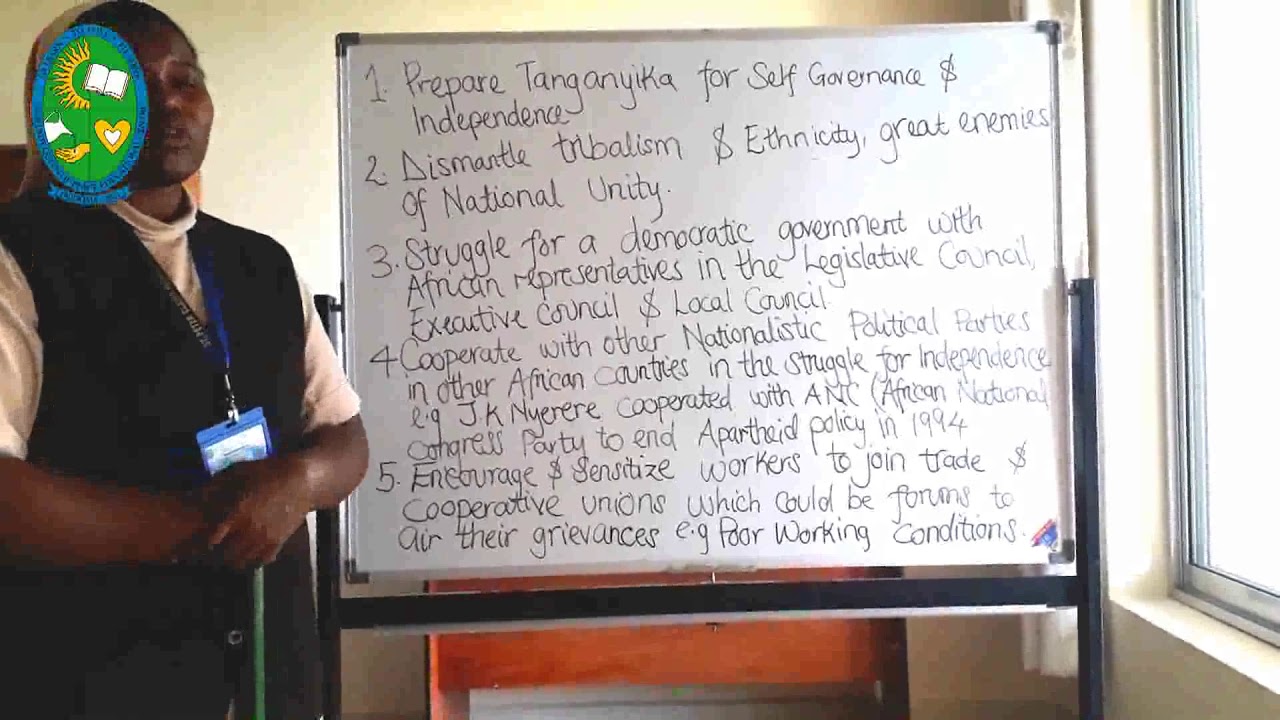 1. Prepare Tanganyika for Self Governance &
Independence
2. Dismantle tribalism & Ethnicity, great enemies
of National Unity.
3. Struggle for a democratic government with
African representatives in the Legislative Council,
Executive Council & Local Council.
4. Cooperate with other Nationalistic Political Parties
in other African countries in the struggle for Independence
e.g J.K Nyerere cooperated with ANC (African National
Congress Party to end Apartheid policy in 1994
5. Encourage & Sensitize workers to join trade &
cooperative unions which could be forums to
air their grievances e.g Poor Working Conditions.